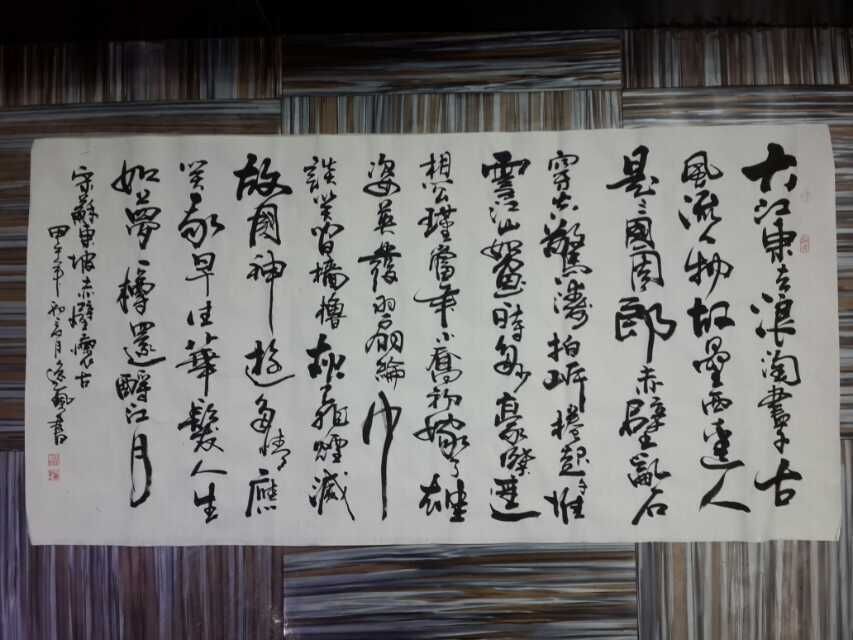 大江東去浪淘盡千古
風流人物故壘西邊人
道是三國周郎赤壁亂石
穿空驚濤拍岸捲起千堆
雪江山如畫一時多少豪傑遥
想公瑾當年小喬初嫁了雄
姿英發羽扇綸巾
談笑間檣櫓灰飛煙滅
故國神遊多情應
笑我早生華髮人生
如夢一樽還酹江月
宋蘇東坡赤壁懷古
甲午年初月書